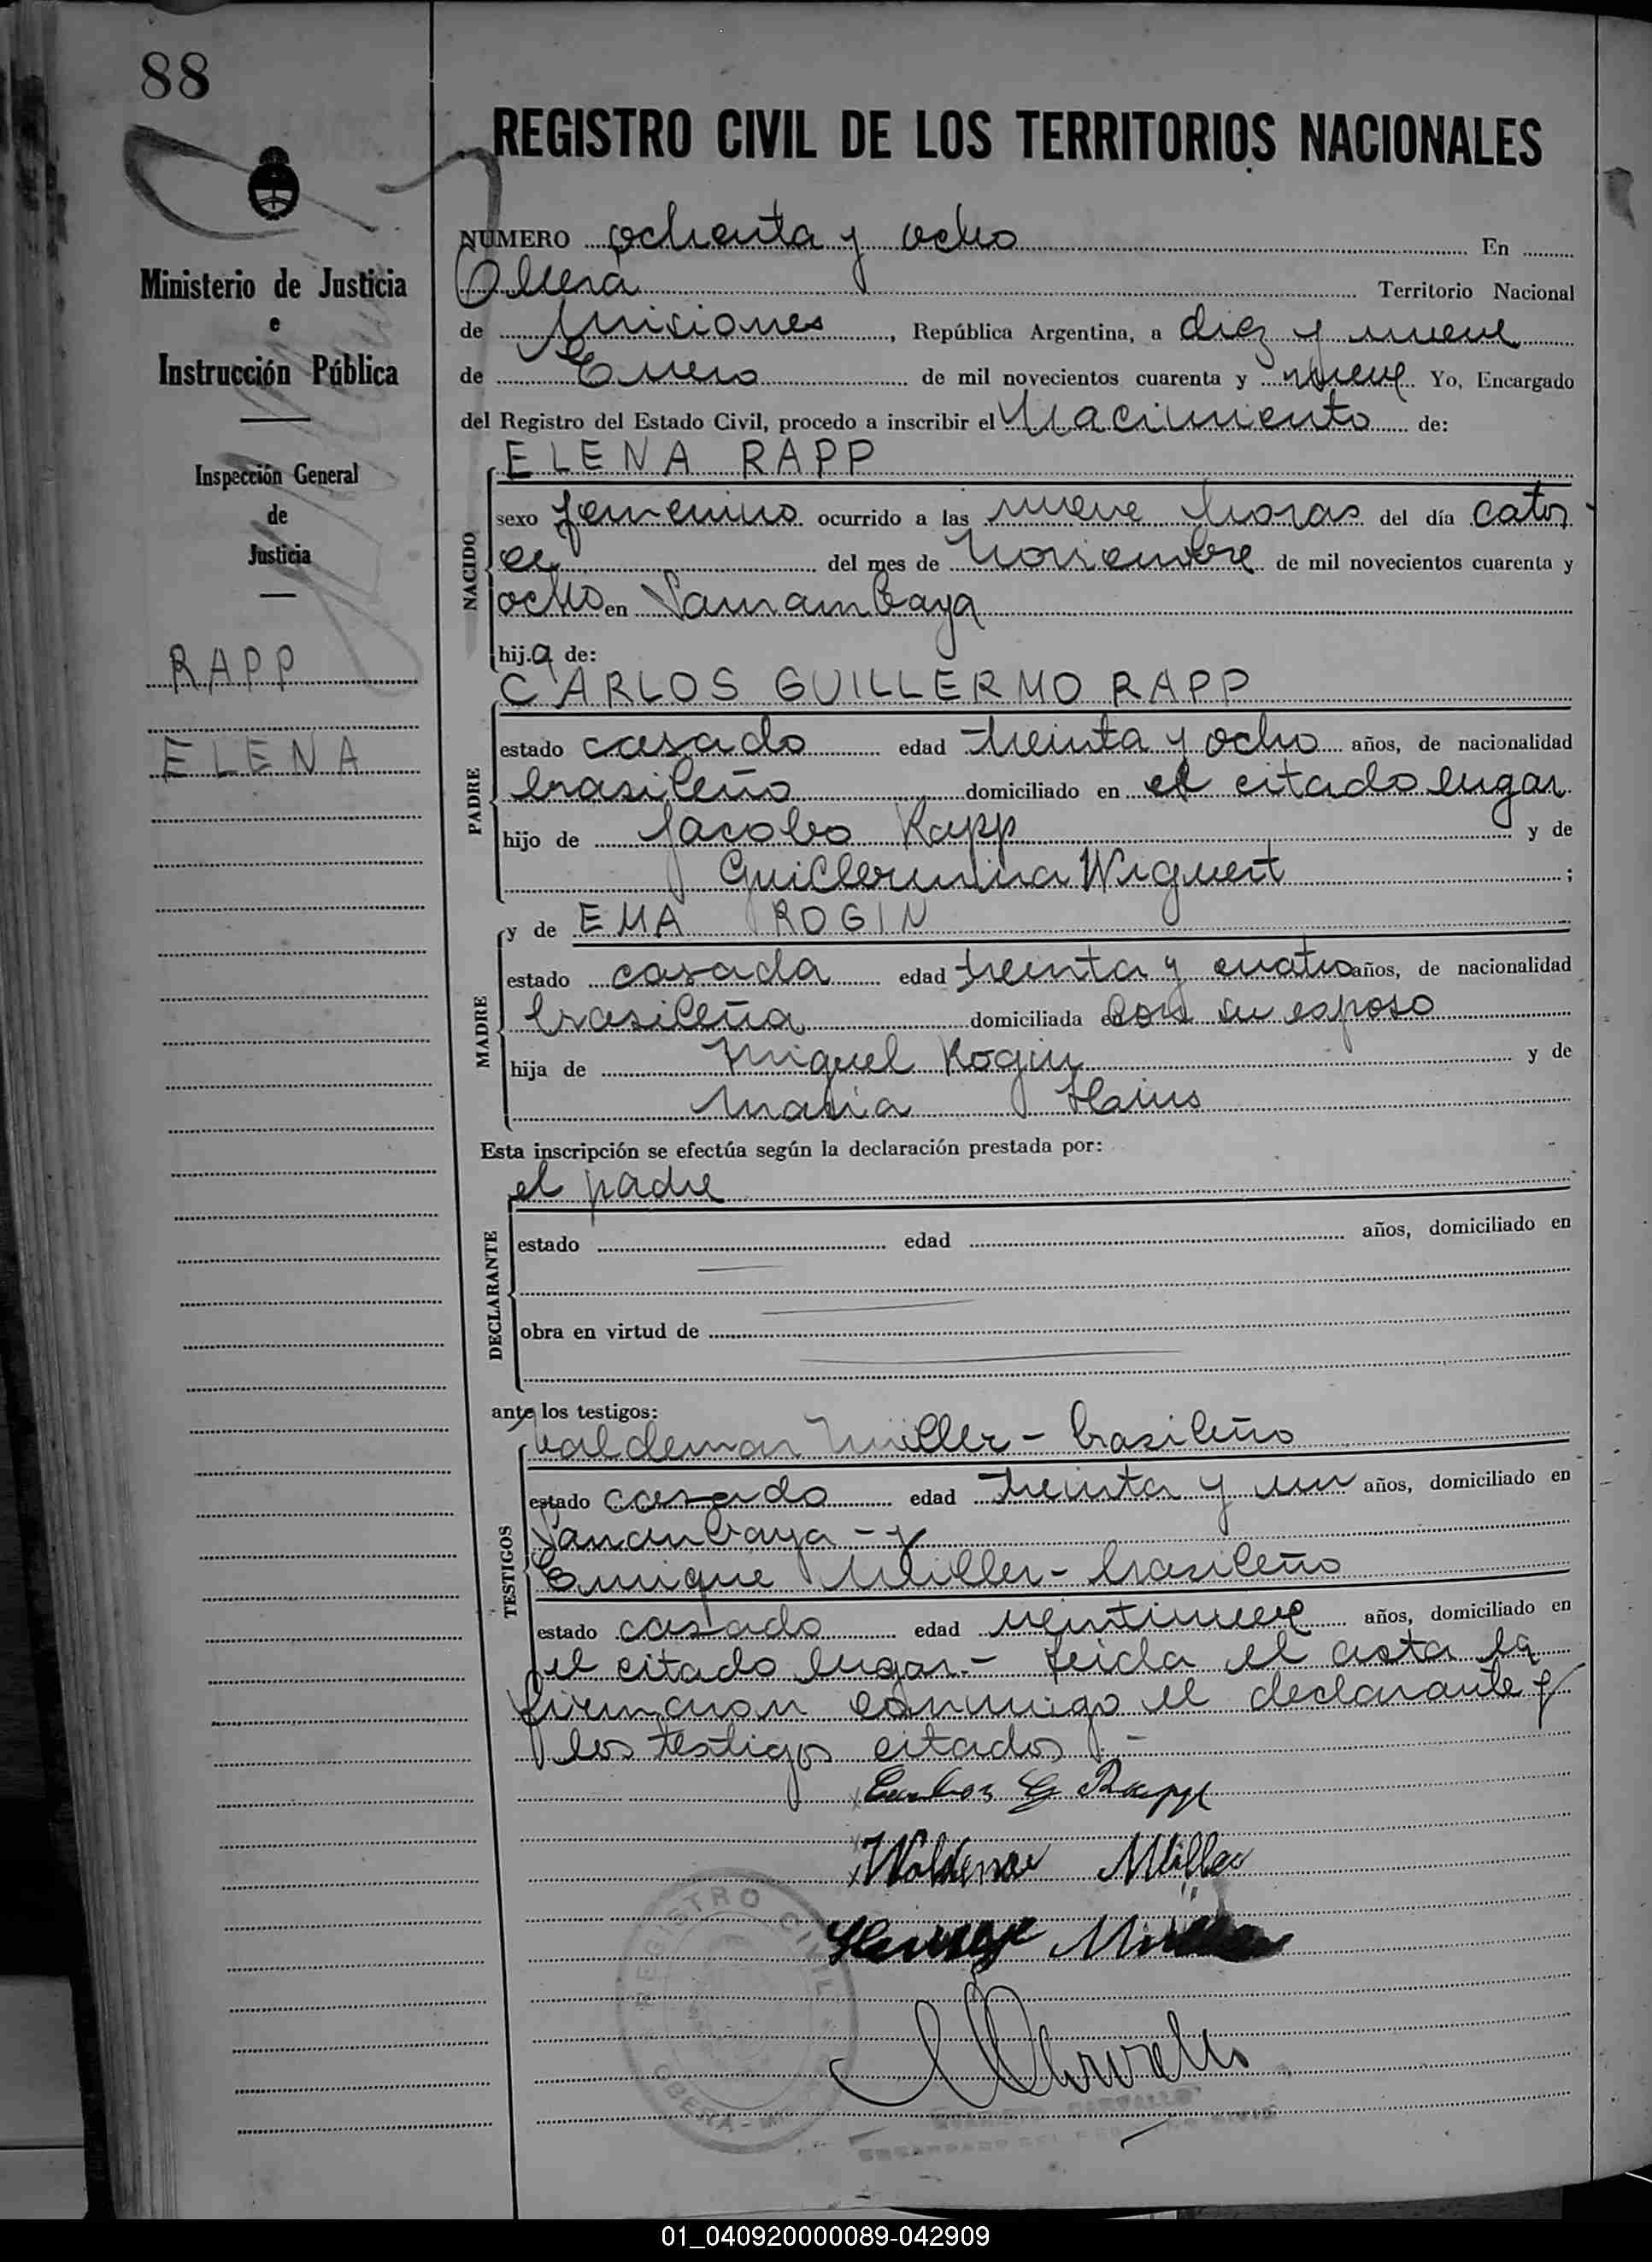 88
REGISTRO CIVIL DE LOS TERRITORIOS NACIONALES
Ministerio de Justicia
e
Instrucción Pública
Inspección General
de
Justicia
RAPP
ELENA
NUMERO ochenta y ocho En
Obera Territorio Nacional
de Misiones, República Argentina, a diez y nueve
de Enero de mil novecientos cuarenta y nueve Yo, Encargado
del Registro del Estado Civil, procedo a inscribir el Nacimiento de:
ELENA RAPP
NACIDO
sexo femenino ocurrido a las nueve horas del día cator-
ce del mes de Noviembre de mil novecientos cuarenta y
ocho en Samambaya
hija de:
CARLOS GUILLERMO RAPP
PADRE
estado casado edad treinta y ocho años, de nacionalidad
brasileño domiciliado en el citado lugar
hijo de Jacobo Rapp y de
Guillermina Wiguert ;
y de EMA ROGIN
MADRE
estado casada edad treinta y cuatro años, de nacionalidad
brasileña domiciliada con su esposo
hija de Miguel Rogin y de
Maria Hins
Esta inscripción se efectúa según la declaración prestada por:
el padre
DECLARANTE
estado edad años, domiciliado en
obra en virtud de
ante los testigos:
Valdemar Müller - brasileño
TESTIGOS
estado casado edad treinta y un años, domiciliado en
Samambaya - y
Enrique Müller - brasileño
estado casado edad veintinueve años, domiciliado en
el citado lugar.- Leida el acta la
firmaron conmigo el declarante y
los testigos citados.-
Carlos G Rapp
Waldemar Müller
REGISTRO CIVIL
OBERA - 
CARVALLO
ENCARGADO DEL REGISTRO CIVIL
01_040920000089-042909